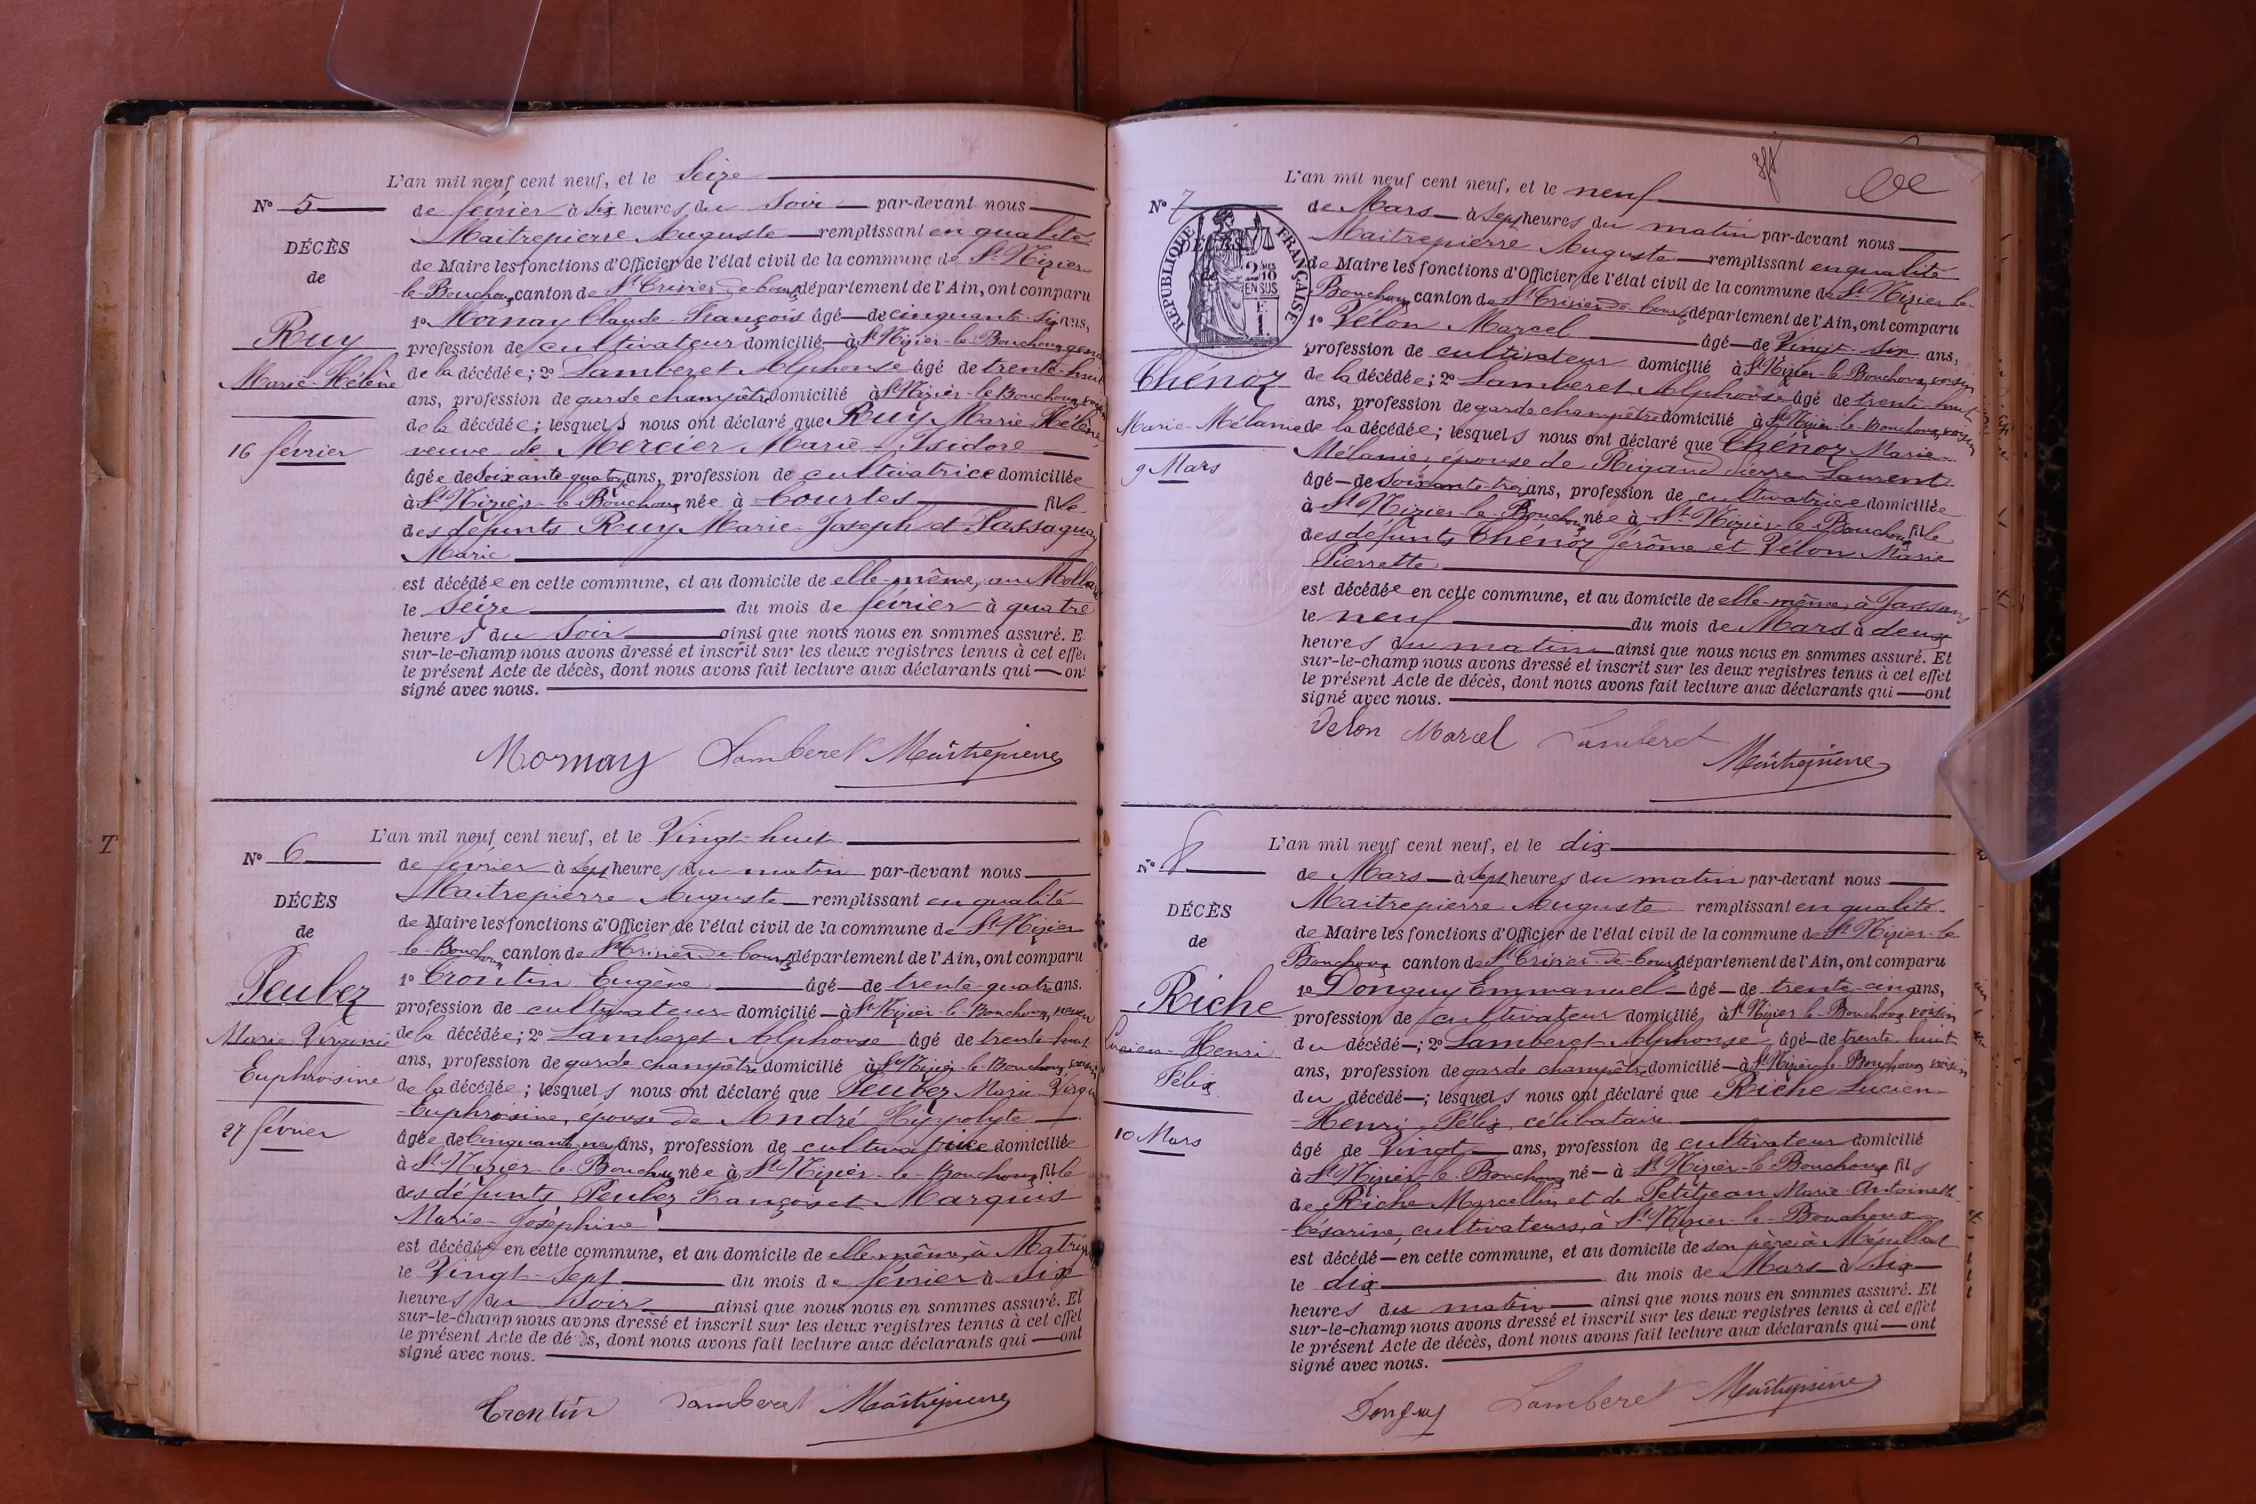 L'an mil neuf cent neuf, et le Seize
N° 5
de février à six heures du soir par-devant nous
Maitrepierre Auguste remplissant en qualité
DÉCÈS
de
de Maire les fonctions d'Officier de l'état civil de la commune de St Nizier
le-Bouchoux canton de St Trivier-de-Courtes département de l'Ain, ont comparu
1° Mornay Claude François âgé de cinquante-six ans,
Ruy
profession de cultivateur domicilié à St Nizier-le-Bouchoux, gendre
Marie-Hélène
de la décédée; 2° Lamberet Alphonse âgé de trente-huit
ans, profession de garde champêtre domicilié à St Nizier-le-Bouchoux, voisin
de la décédée; lesquels nous ont déclaré que Ruy Marie Hélène,
16 février
veuve de Mercier Marie-Isidore
âgée de soixante-quatorze ans, profession de cultivatrice domiciliée
à St Nizier-le-Bouchoux née à Courtes fille
des défunts Ruy Marie-Joseph et Passaquay
Marie
est décédée en cette commune, et au domicile de elle-même, au Mollard
le seize du mois de février à quatre
heures du soir ainsi que nous nous en sommes assuré. Et
sur-le-champ nous avons dressé et inscrit sur les deux registres tenus à cet effet
le présent Acte de décès, dont nous avons fait lecture aux déclarants qui ont
signé avec nous.
Mornay Lamberet Maitrepierre
L'an mil neuf cent neuf, et le Vingt-huit
N° 6
de février à sept heures du matin par-devant nous
Maitrepierre Auguste remplissant en qualité
DÉCÈS
de
de Maire les fonctions d'Officier de l'état civil de la commune de St Nizier
le-Bouchoux canton de St Trivier-de-Courtes département de l'Ain, ont comparu
1° Trontin Eugène âgé de trente-quatre ans.
Peubez
profession de cultivateur domicilié à St Nizier-le-Bouchoux, neveu
Marie-Virginie
de la décédée; 2° Lamberet Alphonse âgé de trente-huit
ans, profession de garde champêtre domicilié à St Nizier-le-Bouchoux, voisin
Euphrosine
de la décédée; lesquels nous ont déclaré que Peubez Marie-Virginie
Euphrosine, épouse de André Hyppolyte
27 février
âgée de cinquante-neuf ans, profession de cultivatrice domiciliée
à St Nizier-le-Bouchoux née à St Nizier-le-Bouchoux, fille
des défunts Peubez François et Marquis
Marie-Joséphine
est décédée en cette commune, et au domicile de elle-même, à
le Vingt-sept du mois de février à six
heures du soir ainsi que nous nous en sommes assuré. Et
sur-le-champ nous avons dressé et inscrit sur les deux registres tenus à cet effet
le présent Acte de décès, dont nous avons fait lecture aux déclarants qui ont
signé avec nous.
Trontin Lamberet Maitrepierre
L'an mil neuf cent neuf, et le neuf
N° 7
de Mars à sept heures du matin par-devant nous
Maitrepierre Auguste remplissant en qualité
DÉCÈS
de
RÉPUBLIQUE FRANÇAISE
2/10 EN SUS
F. 1.
de Maire les fonctions d'Officier de l'état civil de la commune de St Nizier-le-
Bouchoux canton de St Trivier-de-Courtes département de l'Ain, ont comparu
1° Vélon Marcel âgé de Vingt-six ans,
profession de cultivateur domicilié à St Nizier-le-Bouchoux, voisin
Thénoz
de la décédée; 2° Lamberet Alphonse âgé de trente-huit
ans, profession de garde champêtre domicilié à St Nizier-le-Bouchoux, voisin
Marie-Mélanie
de la décédée; lesquels nous ont déclaré que Thénoz Marie-
Mélanie, épouse de Rigaud Pierre Laurent
9 Mars
âgé de soixante-trois ans, profession de cultivatrice domiciliée
à St Nizier-le-Bouchoux née à St Nizier-le-Bouchoux, fille
des défunts Thénoz Jérôme et Vélon Marie
Pierrette
est décédée en cette commune, et au domicile de elle-même, à
le neuf du mois de Mars à deux
heures du matin ainsi que nous nous en sommes assuré. Et
sur-le-champ nous avons dressé et inscrit sur les deux registres tenus à cet effet
le présent Acte de décès, dont nous avons fait lecture aux déclarants qui ont
signé avec nous.
Velon Marcel Lamberet Maitrepierre
L'an mil neuf cent neuf, et le dix
N° 8
de Mars à sept heures du matin par-devant nous
Maitrepierre Auguste remplissant en qualité
DÉCÈS
de
de Maire les fonctions d'Officier de l'état civil de la commune de St Nizier-le
Bouchoux canton de St Trivier-de-Courtes département de l'Ain, ont comparu
1° Donguy Emmanuel âgé de trente-cinq ans,
Riche
profession de cultivateur domicilié à St Nizier-le-Bouchoux, voisin
Lucien-Henri
du décédé; 2° Lamberet Alphonse âgé de trente-huit
Félix
ans, profession de garde champêtre domicilié à St Nizier-le-Bouchoux, voisin
du décédé; lesquels nous ont déclaré que Riche Lucien-
Henri-Félix, célibataire
10 Mars
âgé de Vingt ans, profession de cultivateur domicilié
à St Nizier-le-Bouchoux né à St Nizier-le-Bouchoux fils
de Riche Marcellin et de Petitjean Marie-Antoinette-
Césarine, cultivateurs, à St Nizier-le-Bouchoux
est décédé en cette commune, et au domicile de son père à
le dix du mois de Mars à six
heures du matin ainsi que nous nous en sommes assuré. Et
sur-le-champ nous avons dressé et inscrit sur les deux registres tenus à cet effet
le présent Acte de décès, dont nous avons fait lecture aux déclarants qui ont
signé avec nous.
Donguy Lamberet Maitrepierre